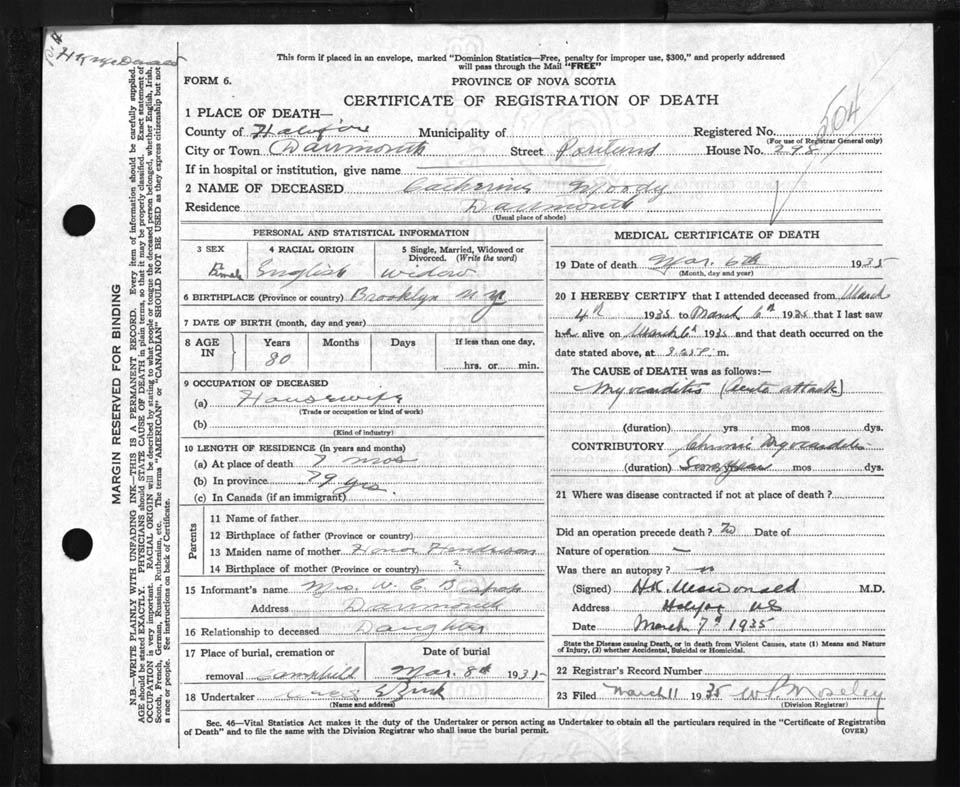 This form if placed in an envelope, marked "Dominion Statistics—Free, penalty for improper use, $300," and properly addressed
will pass through the Mail "FREE"
FORM 6.
PROVINCE OF NOVA SCOTIA
CERTIFICATE OF REGISTRATION OF DEATH
504
1 PLACE OF DEATH—
County of Halifax Municipality of Registered No.
(For use of Registrar General only)
City or Town Dartmouth Street Portland House No. 298
If in hospital or institution, give name
2 NAME OF DECEASED Catherine Moody
Residence Dartmouth
(Usual place of abode)
PERSONAL AND STATISTICAL INFORMATION
3 SEX 4 RACIAL ORIGIN 5 Single, Married, Widowed or
Divorced. (Write the word)
Female English Widow
6 BIRTHPLACE (Province or country) Brooklyn N.Y
7 DATE OF BIRTH (month, day and year)
8 AGE IN Years Months Days If less than one day,
80 hrs. or min.
9 OCCUPATION OF DECEASED
(a) Housewife
(Trade or occupation or kind of work)
(b)
(Kind of industry)
10 LENGTH OF RESIDENCE (in years and months)
(a) At place of death 7 mos
(b) In province 79 yrs.
(c) In Canada (if an immigrant)
Parents
11 Name of father
12 Birthplace of father (Province or country)
13 Maiden name of mother Honor
14 Birthplace of mother (Province or country) ?
15 Informant's name Mrs. W. C. Bishop
Address Dartmouth
16 Relationship to deceased Daughter
17 Place of burial, cremation or Date of burial
removal Mar. 8th 1935
18 Undertaker
(Name and address)
MEDICAL CERTIFICATE OF DEATH
19 Date of death Mar. 6th 1935
(Month, day and year)
20 I HEREBY CERTIFY that I attended deceased from March
4th 1935 to March 6th 1935 that I last saw
her alive on March 6th 1935 and that death occurred on the
date stated above, at m.
The CAUSE of DEATH was as follows:—
Myocarditis (Acute attack)
(duration) yrs mos dys.
CONTRIBUTORY Chronic Myocarditis
(duration) Some Years mos dys.
21 Where was disease contracted if not at place of death?
Did an operation precede death? No Date of
Nature of operation —
Was there an autopsy? no
(Signed) H.K. MacDonald M.D.
Address Halifax NS
Date March 7th 1935
State the Disease causing Death, or in death from Violent Causes, state (1) Means and Nature
of Injury, (2) whether Accidental, Suicidal or Homicidal.
22 Registrar's Record Number
23 Filed March 11 1935 W P Moseley
(Division Registrar)
Sec. 46—Vital Statistics Act makes it the duty of the Undertaker or person acting as Undertaker to obtain all the particulars required in the "Certificate of Registration
of Death" and to file the same with the Division Registrar who shall issue the burial permit. (OVER)
H K McDonald
MARGIN RESERVED FOR BINDING
N.B.—WRITE PLAINLY WITH UNFADING INK—THIS IS A PERMANENT RECORD. Every item of information should be carefully supplied.
AGE should be stated EXACTLY. PHYSICIANS should STATE CAUSE OF DEATH in plain terms, so that it may be properly classified. Exact statement of
OCCUPATION is very important. RACIAL ORIGIN will be described by stating to what people or tongue the deceased person belonged, whether English, Irish,
Scotch, French, German, Russian, Ruthenian, etc. The terms "AMERICAN" or "CANADIAN" SHOULD NOT BE USED as they express citizenship but not
a race or people. See instructions on back of Certificate.